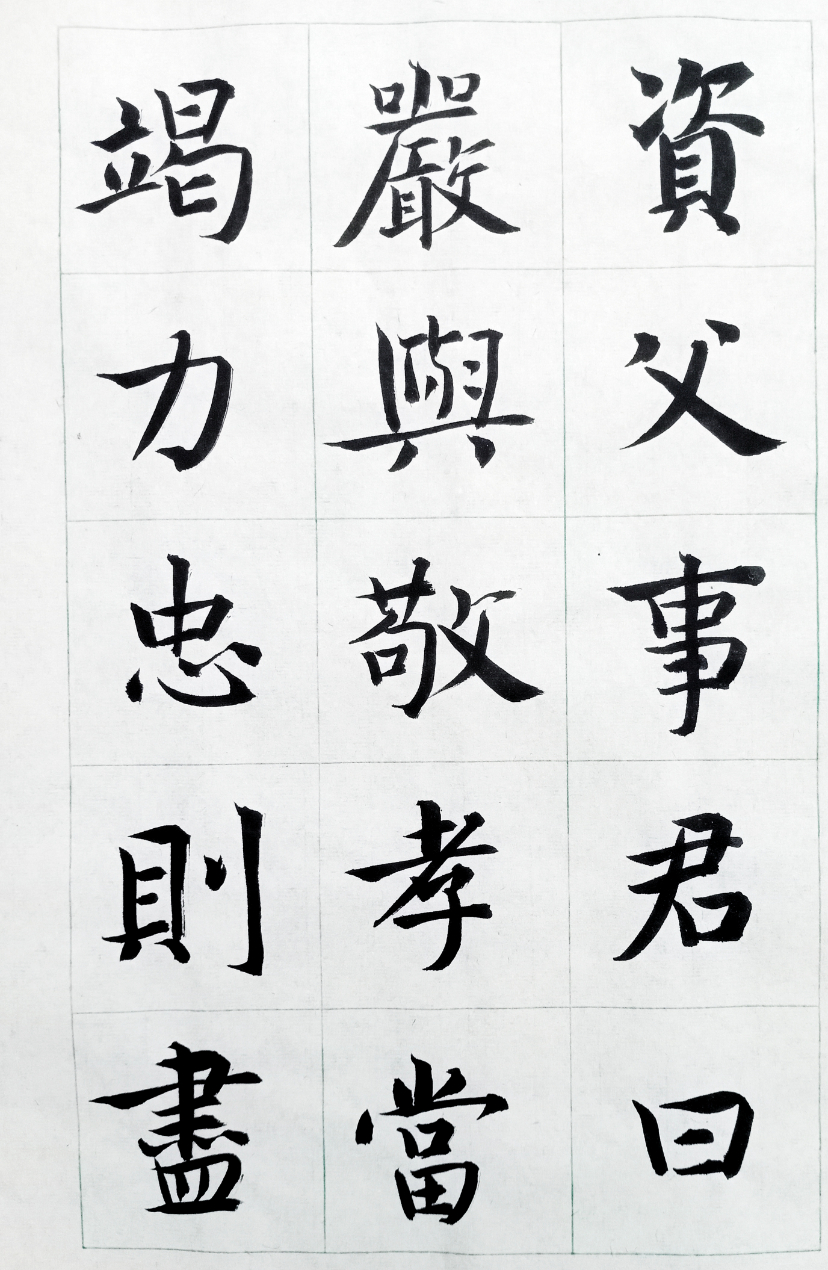 資父事君曰
嚴與敬孝當
竭力忠則盡